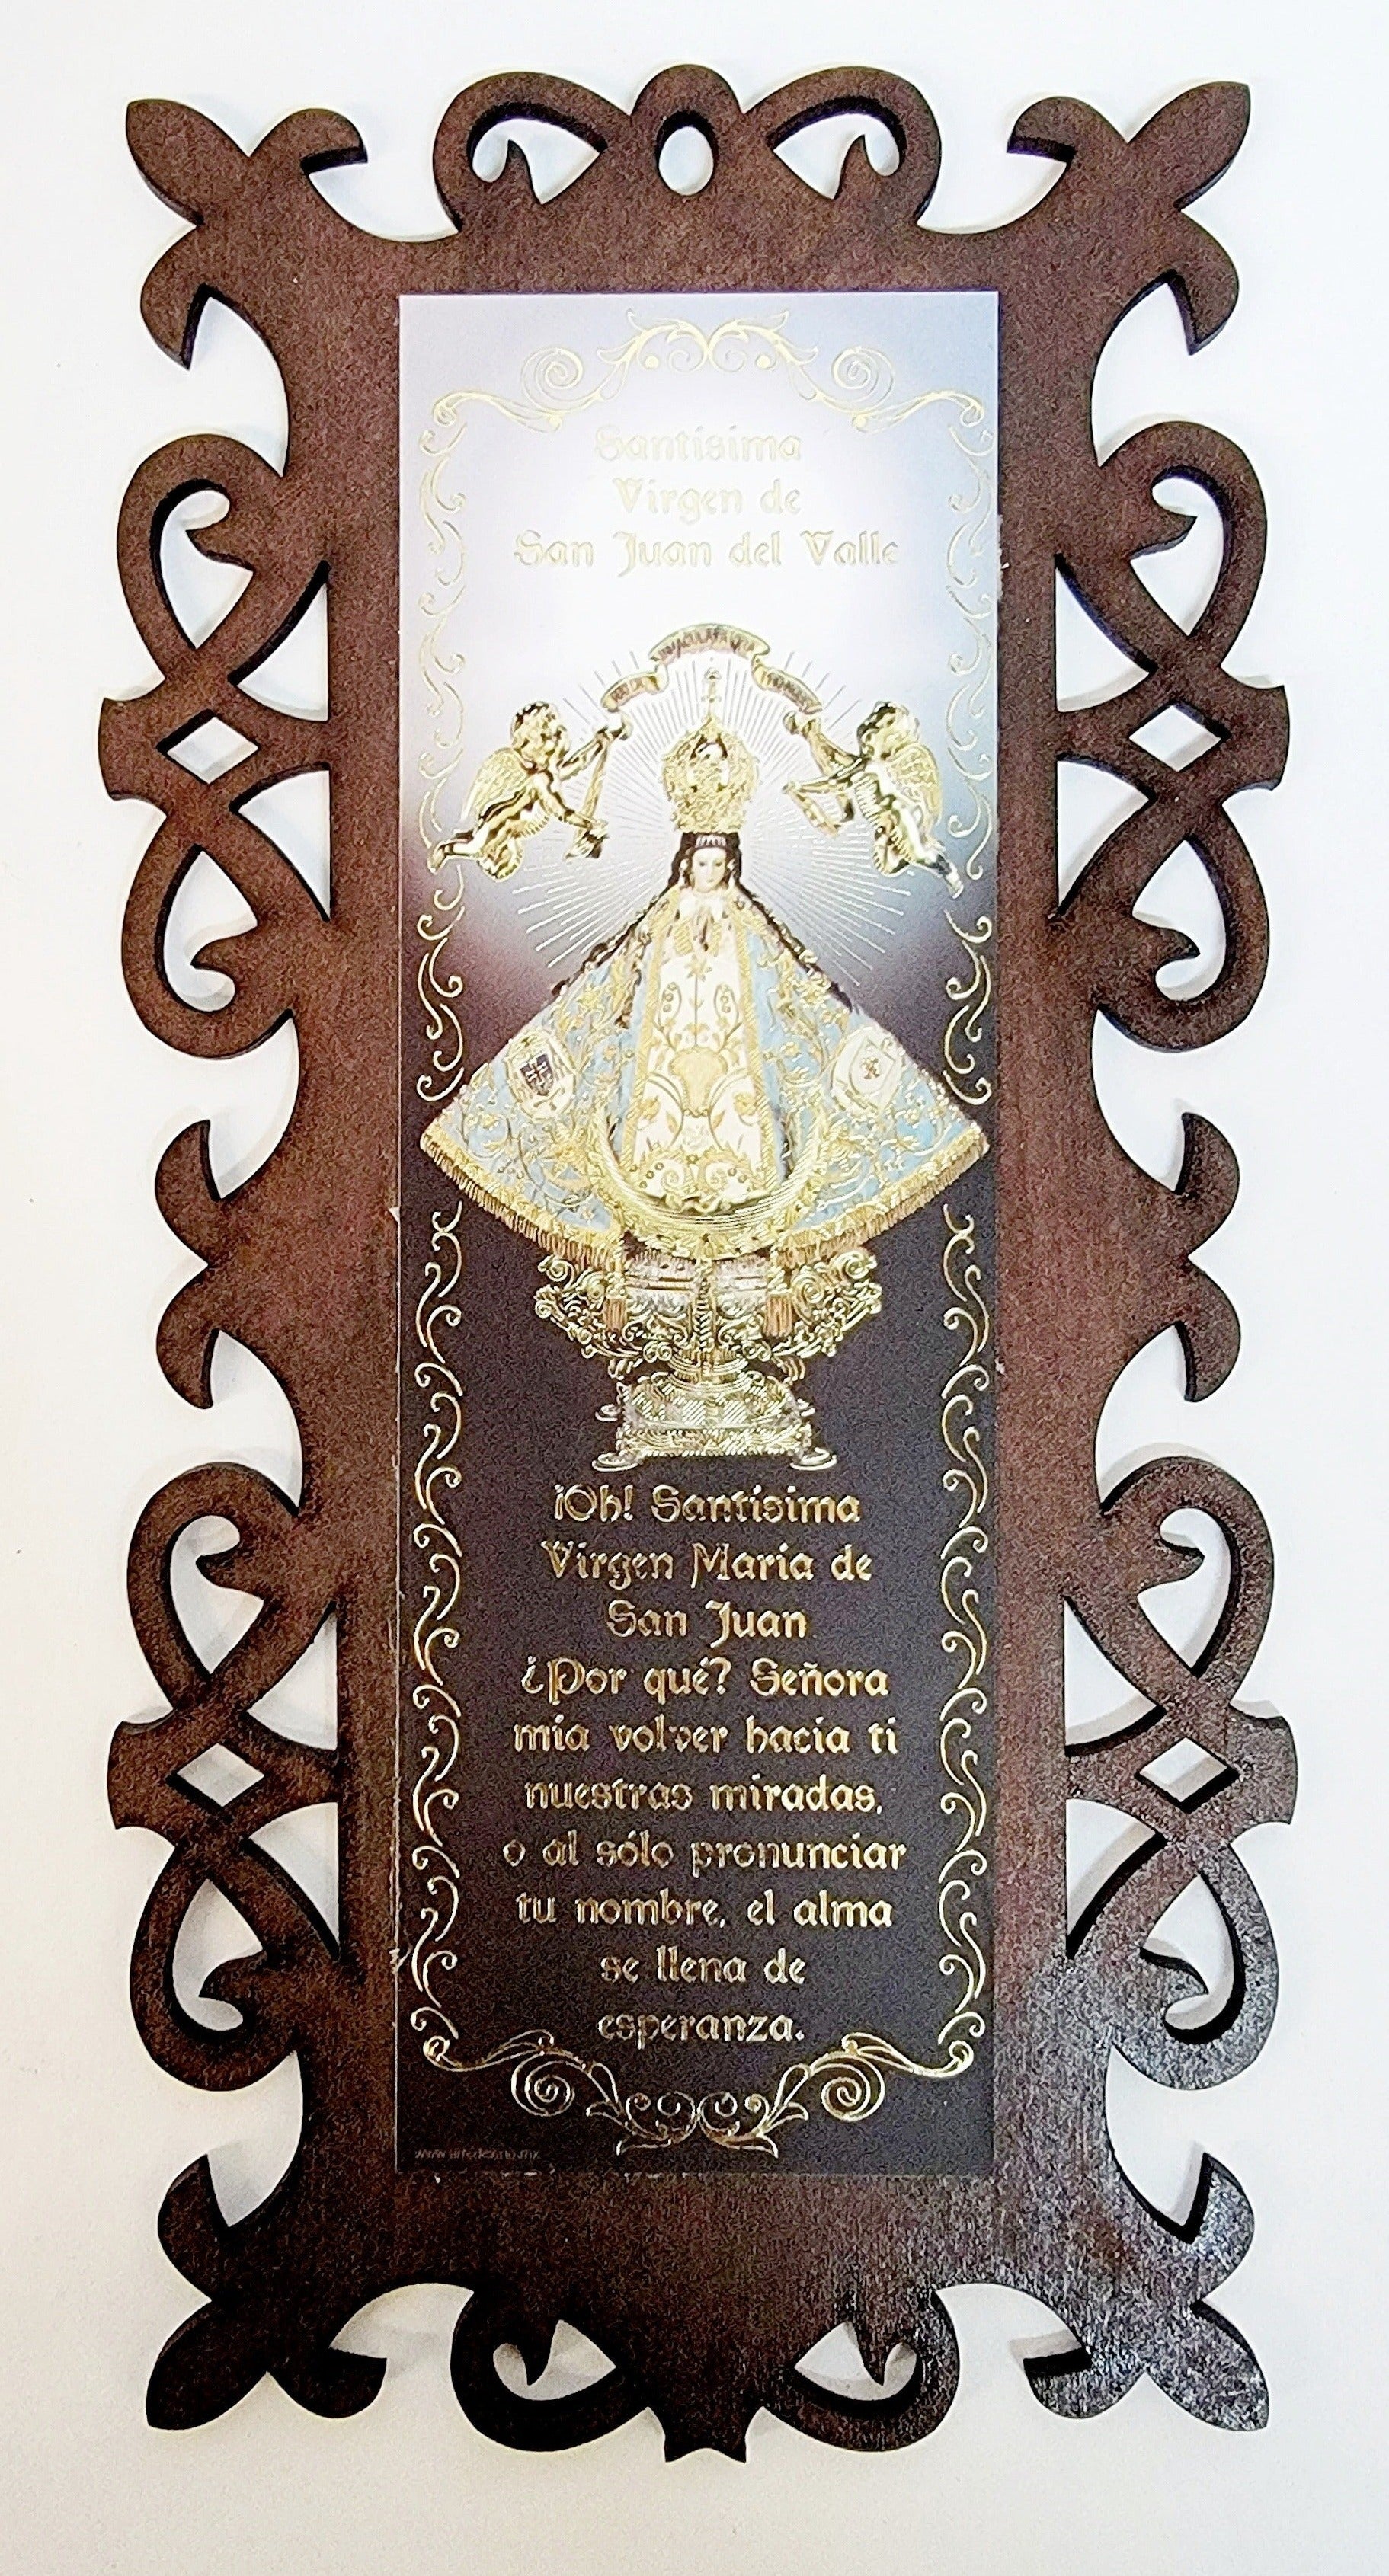 Santísima
Virgen de
San Juan del Valle
¡Oh! Santísima
Virgen Maria de
San Juan
¿Por qué? Señora
mia volver hacia ti
nuestras miradas,
o al sólo pronunciar
tu nombre, el alma
se llena de
esperanza.